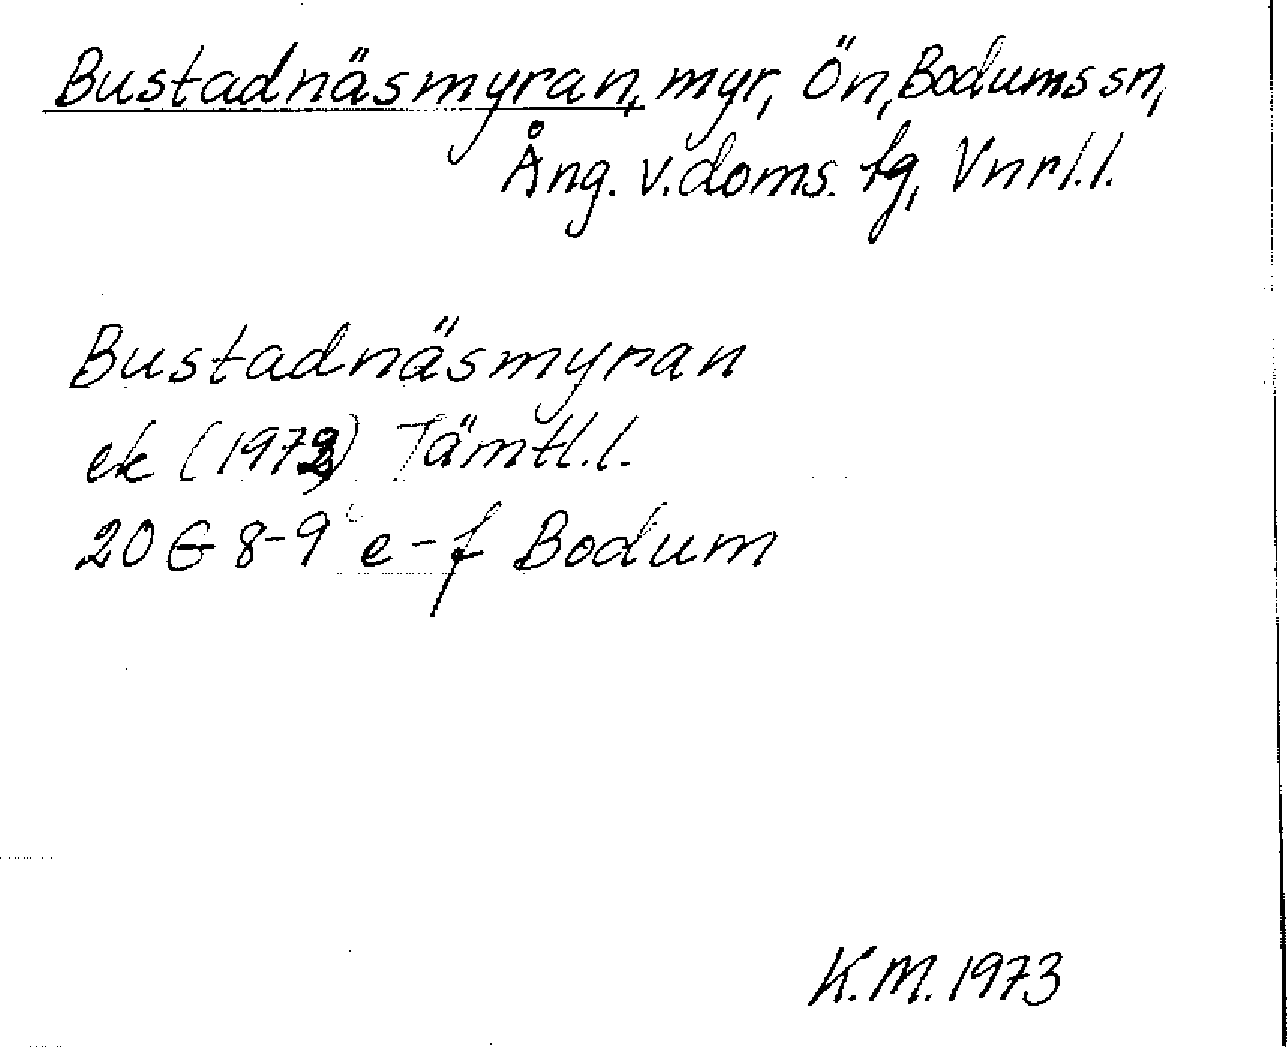 Bustadnäsmyran, myr, Ön, Bodums sn,
Ång. v. doms. tg, Vnrl.l.
Bustadnäsmyran
ek (1972) Jämtl.l.
20 G 8-9 e-f Bodum
K.M. 1973